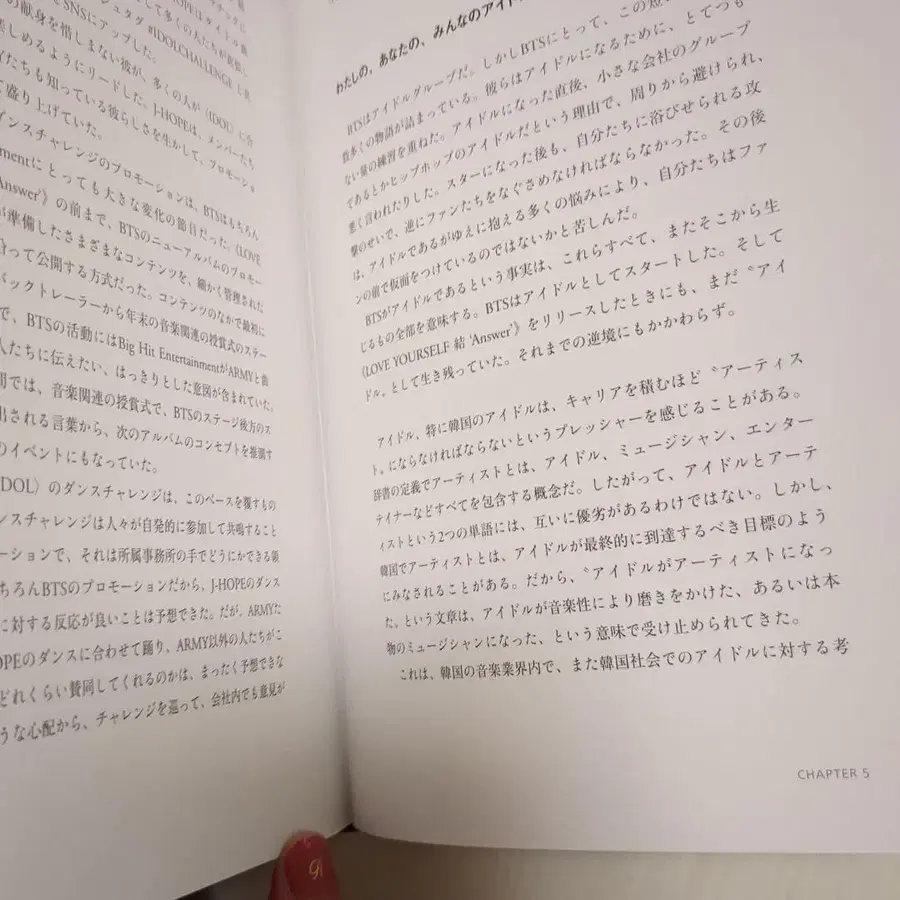 て多くの人たちが
ュタグ #IDOLCHALLENGE
SNSにアップした。
の献身を惜しまない彼が、多くの人が〈IDOL〉に
楽しめるようにリードした。J-HOPEは、メンバーたち
たちも知っている彼らしさを生かして、プロモーショ
盛り上げていた。
ンスチャレンジのプロモーションは、BTSはもちろん
mentにとっても大きな変化の節目だった。《LOVE
Answer'》の前まで、BTSのニューアルバムのプロモー
が準備したさまざまなコンテンツを、細かく管理された
沿って公開する方式だった。コンテンツのなかで最初に
バックトレーラーから年末の音楽関連の授賞式のステー
で、BTSの活動にはBig Hit EntertainmentがARMYと
人たちに伝えたい、はっきりとした意図が含まれていた。
間では、音楽関連の授賞式で、BTSのステージ後方のス
出される言葉から、次のアルバムのコンセプトを推測す
のイベントにもなっていた。
IDOL〉のダンスチャレンジは、このペースを覆すもの
ンスチャレンジは人々が自発的に参加して共鳴すること
ーションで、それは所属事務所の手でどうにかできる領
ちろんBTSのプロモーションだから、J-HOPEのダンス
に対する反応が良いことは予想できた。だが、ARMYた
OPEのダンスに合わせて踊り、ARMY以外の人たちがこ
どれくらい賛同してくれるのかは、まったく予想できな
うな心配から、チャレンジを巡って、会社内でも意見が
わたしの、あなたの、みんなのアイド
BTSはアイドルグループだ。しかしBTSにとって、この短
数多くの物語が詰まっている。彼らはアイドルになるために、とてつも
ない量の練習を重ねた。アイドルになった直後、小さな会社のグループ
であるとかヒップホップのアイドルだという理由で、周りから避けられ、
悪く言われたりした。スターになった後も、自分たちに浴びせられる攻
撃のせいで、逆にファンたちをなぐさめなければならなかった。その後
は、アイドルであるがゆえに抱える多くの悩みにより、自分たちはファ
ンの前で仮面をつけているのではないかと苦しんだ。
BTSがアイドルであるという事実は、これらすべて、またそこから生
じるもの全部を意味する。BTSはアイドルとしてスタートした。そして
《LOVE YOURSELF 結 'Answer'》をリリースしたときにも、まだ〝アイ
ドル〟として生き残っていた。それまでの逆境にもかかわらず。
アイドル、特に韓国のアイドルは、キャリアを積むほど〝アーティス
ト〟にならなければならないというプレッシャーを感じることがある。
辞書の定義でアーティストとは、アイドル、ミュージシャン、エンター
テイナーなどすべてを包含する概念だ。したがって、アイドルとアーテ
ィストという2つの単語には、互いに優劣があるわけではない。しかし、
韓国でアーティストとは、アイドルが最終的に到達するべき目標のよう
にみなされることがある。だから、〝アイドルがアーティストになっ
た〟という文章は、アイドルが音楽性により磨きをかけた、あるいは本
物のミュージシャンになった、という意味で受け止められてきた。
これは、韓国の音楽業界内で、また韓国社会でのアイドルに対する考
CHAPTER 5